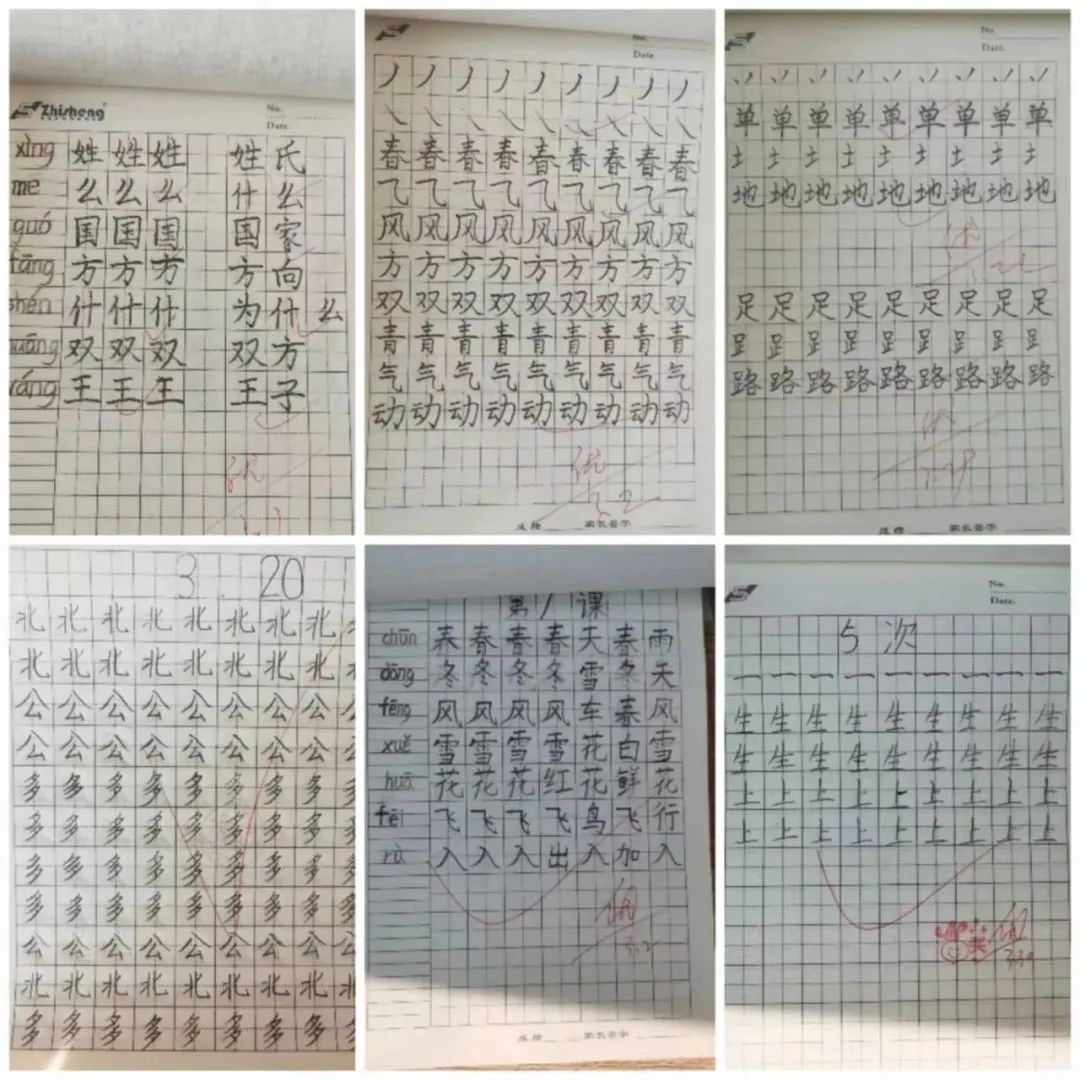 Zhisheng
No.
Date.
xìng 姓 姓 姓 姓 氏
me 么 么 么 什 么
guó 国 国 国 国 家
fāng 方 方 方 方 向
shén 什 什 什 为 什 么
双 双 双 双 方
王 王 王 王 子
优
No.
Date
丿 丿 丿 丿 丿 丿 丿 丿 丿
㇏ ㇏ ㇏ ㇏ ㇏ ㇏ ㇏ ㇏ ㇏
春 春 春 春 春 春 春 春 春
飞 飞 飞 飞 飞 飞 飞 飞 飞
风 风 风 风 风 风 风 风 风
方 方 方 方 方 方 方 方 方
双 双 双 双 双 双 双 双 双
青 青 青 青 青 青 青 青 青
气 气 气 气 气 气 气 气 气
动 动 动 动 动 动 动 动 动
优
3.2
成绩 家长签字
No.
Date.
丷 丷 丷 丷 丷 丷 丷 丷 丷
单 单 单 单 单 单 单 单 单
土 土 土 土 土 土 土 土 土
地 地 地 地 地 地 地 地 地
优
足 足 足 足 足 足 足 足 足
𧾷 𧾷 𧾷 𧾷 𧾷 𧾷 𧾷 𧾷 𧾷
路 路 路 路 路 路 路 路 路
优
成绩 家长签字
3.20
北 北 北 北 北 北 北 北
北 北 北 北 北 北 北 北
公 公 公 公 公 公 公 公
公 公 公 公 公 公 公 公
多 多 多 多 多 多 多 多
多 多 多 多 多 多 多 多
多 多 多 多 多 多 多 多
多 多 多 多 多 多 多 多
公 公 公 公 公 公 公 公
北 北 北 北 北 北 北 北
多 多 多 多 多 多 多 多
第1课
chūn 春 春 春 春 天 春 雨
dōng 冬 冬 冬 冬 雪 冬 天
fēng 风 风 风 风 车 春 风
xuě 雪 雪 雪 雪 花 白 雪
huā 花 花 花 红 花 鲜 花
fēi 飞 飞 飞 飞 鸟 飞 行
rù 入 入 入 出 入 加 入
优
成绩 家长签字
No.
Date.
5次
一 一 一 一 一 一 一 一 一
生 生 生 生 生 生 生 生 生
生 生 生 生 生 生 生 生 生
上 上 上 上 上 上 上 上 上
上 上 上 上 上 上 上 上 上
优
3.30